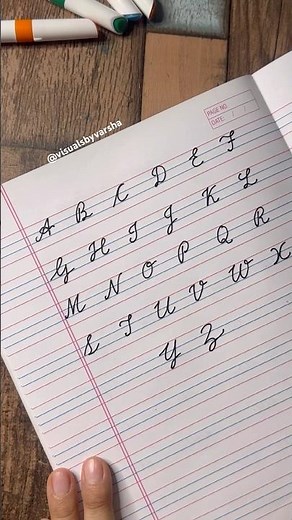 @visualsbyvarsha
PAGE NO.
DATE: / /
A B C D E F
G H I J K L
M N O P Q R
S T U V W X
Y Z